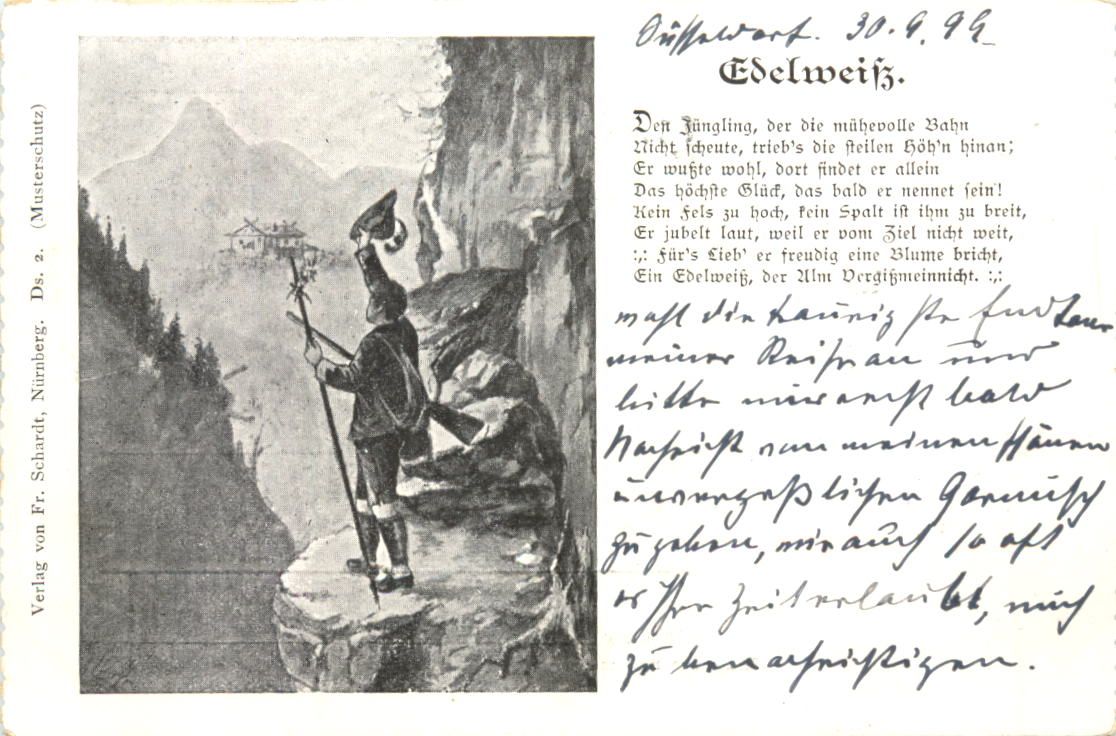 Verlag von Fr. Schardt, Nürnberg. Ds. 2. (Musterschutz)
Düsseldorf. 30. 9. 99
Edelweiß.
Den Jüngling, der die mühevolle Bahn
Nicht scheute, trieb's die steilen Höh'n hinan;
Er wußte wohl, dort findet er allein
Das höchste Glück, das bald er nennet sein!
Kein Fels zu hoch, kein Spalt ist ihm zu breit,
Er jubelt laut, weil er vom Ziel nicht weit,
:,: Für's Lieb' er freudig eine Blume bricht,
Ein Edelweiß, der Alm Vergißmeinnicht. :,:
wohl die traurigste
meiner Reise an und
bitte mir recht bald
Nachricht von meinem schönen
unvergeßlichen Garmisch
zu geben, mir auch so oft
es Ihre Zeit erlaubt, mich
zu benachrichtigen.